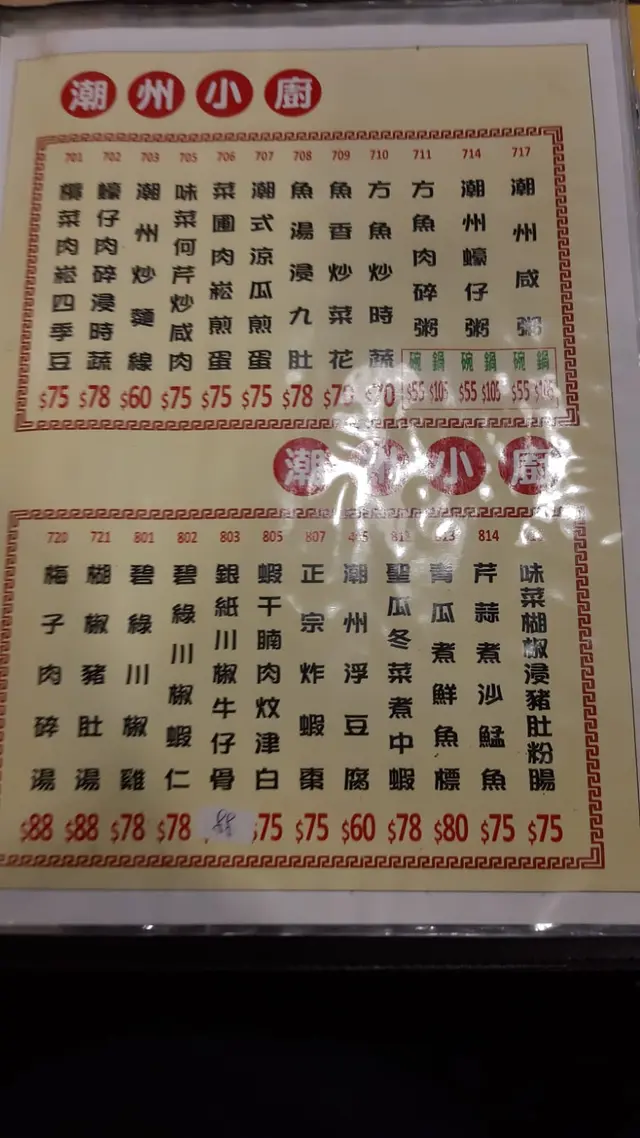 潮州小廚
701 欖菜肉崧四季豆 $75
702 蠔仔肉碎浸時蔬 $78
703 潮州炒麵線 $60
705 味菜何芹炒咸肉 $75
706 菜圃肉崧煎蛋 $75
707 潮式涼瓜煎蛋 $75
708 魚湯浸九肚 $78
709 魚香炒菜花
710 方魚炒時蔬 $70
711 方魚肉碎粥 碗 $55 鍋 $105
714 潮州蠔仔粥 碗 $55 鍋 $105
717 潮州咸粥 碗 $55 鍋
潮州小廚
720 梅子肉碎湯 $88
721 椒豬肚湯 $88
801 碧綠川椒雞 $78
802 碧綠川椒蝦仁 $78
803 銀紙川椒牛仔骨 88
805 蝦干腩肉炆津白 $75
807 正宗炸蝦棗 $75
潮州浮豆腐 $60
812 聖瓜冬菜煮中蝦 $78
813 青瓜煮鮮魚標 $80
814 芹蒜煮沙鯭魚 $75
味菜椒浸豬肚粉腸 $75